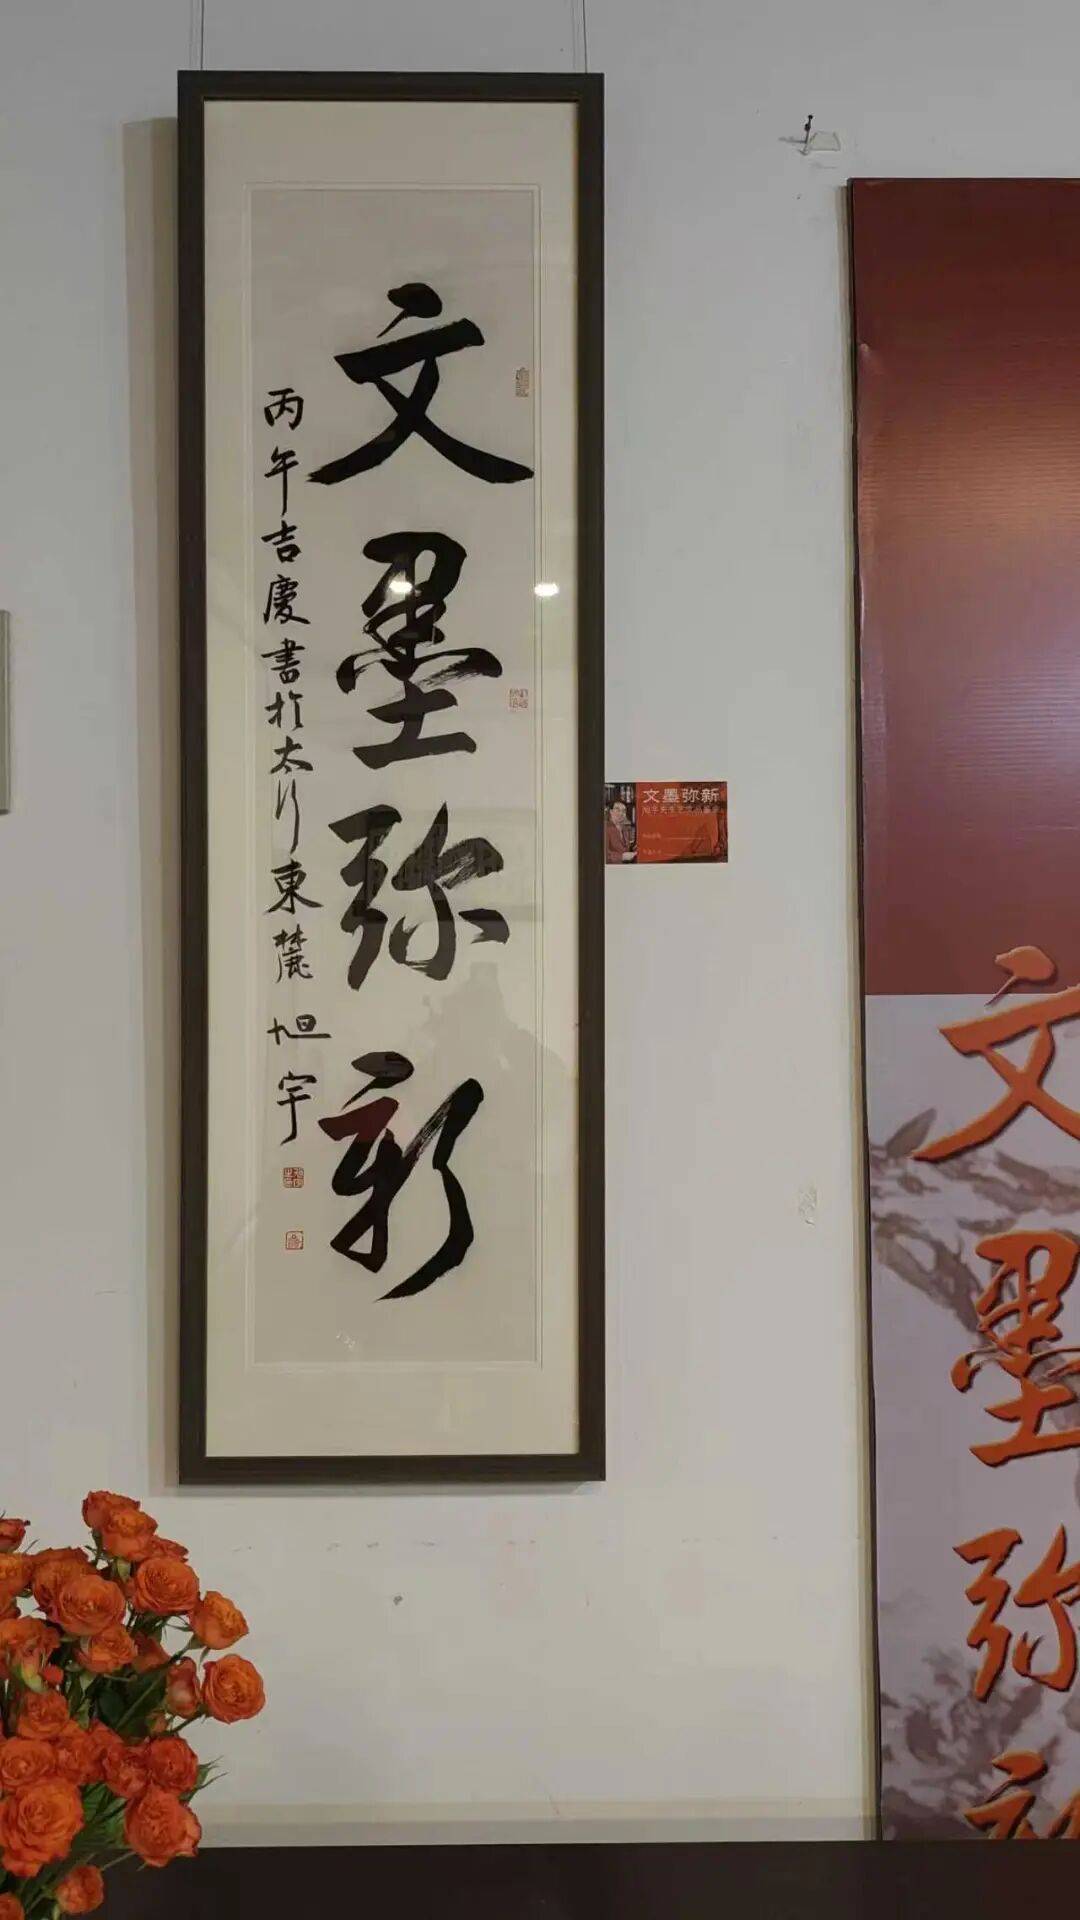 文墨弥新
丙午吉慶書於太行東麓 旭宇
文墨弥新
文墨弥